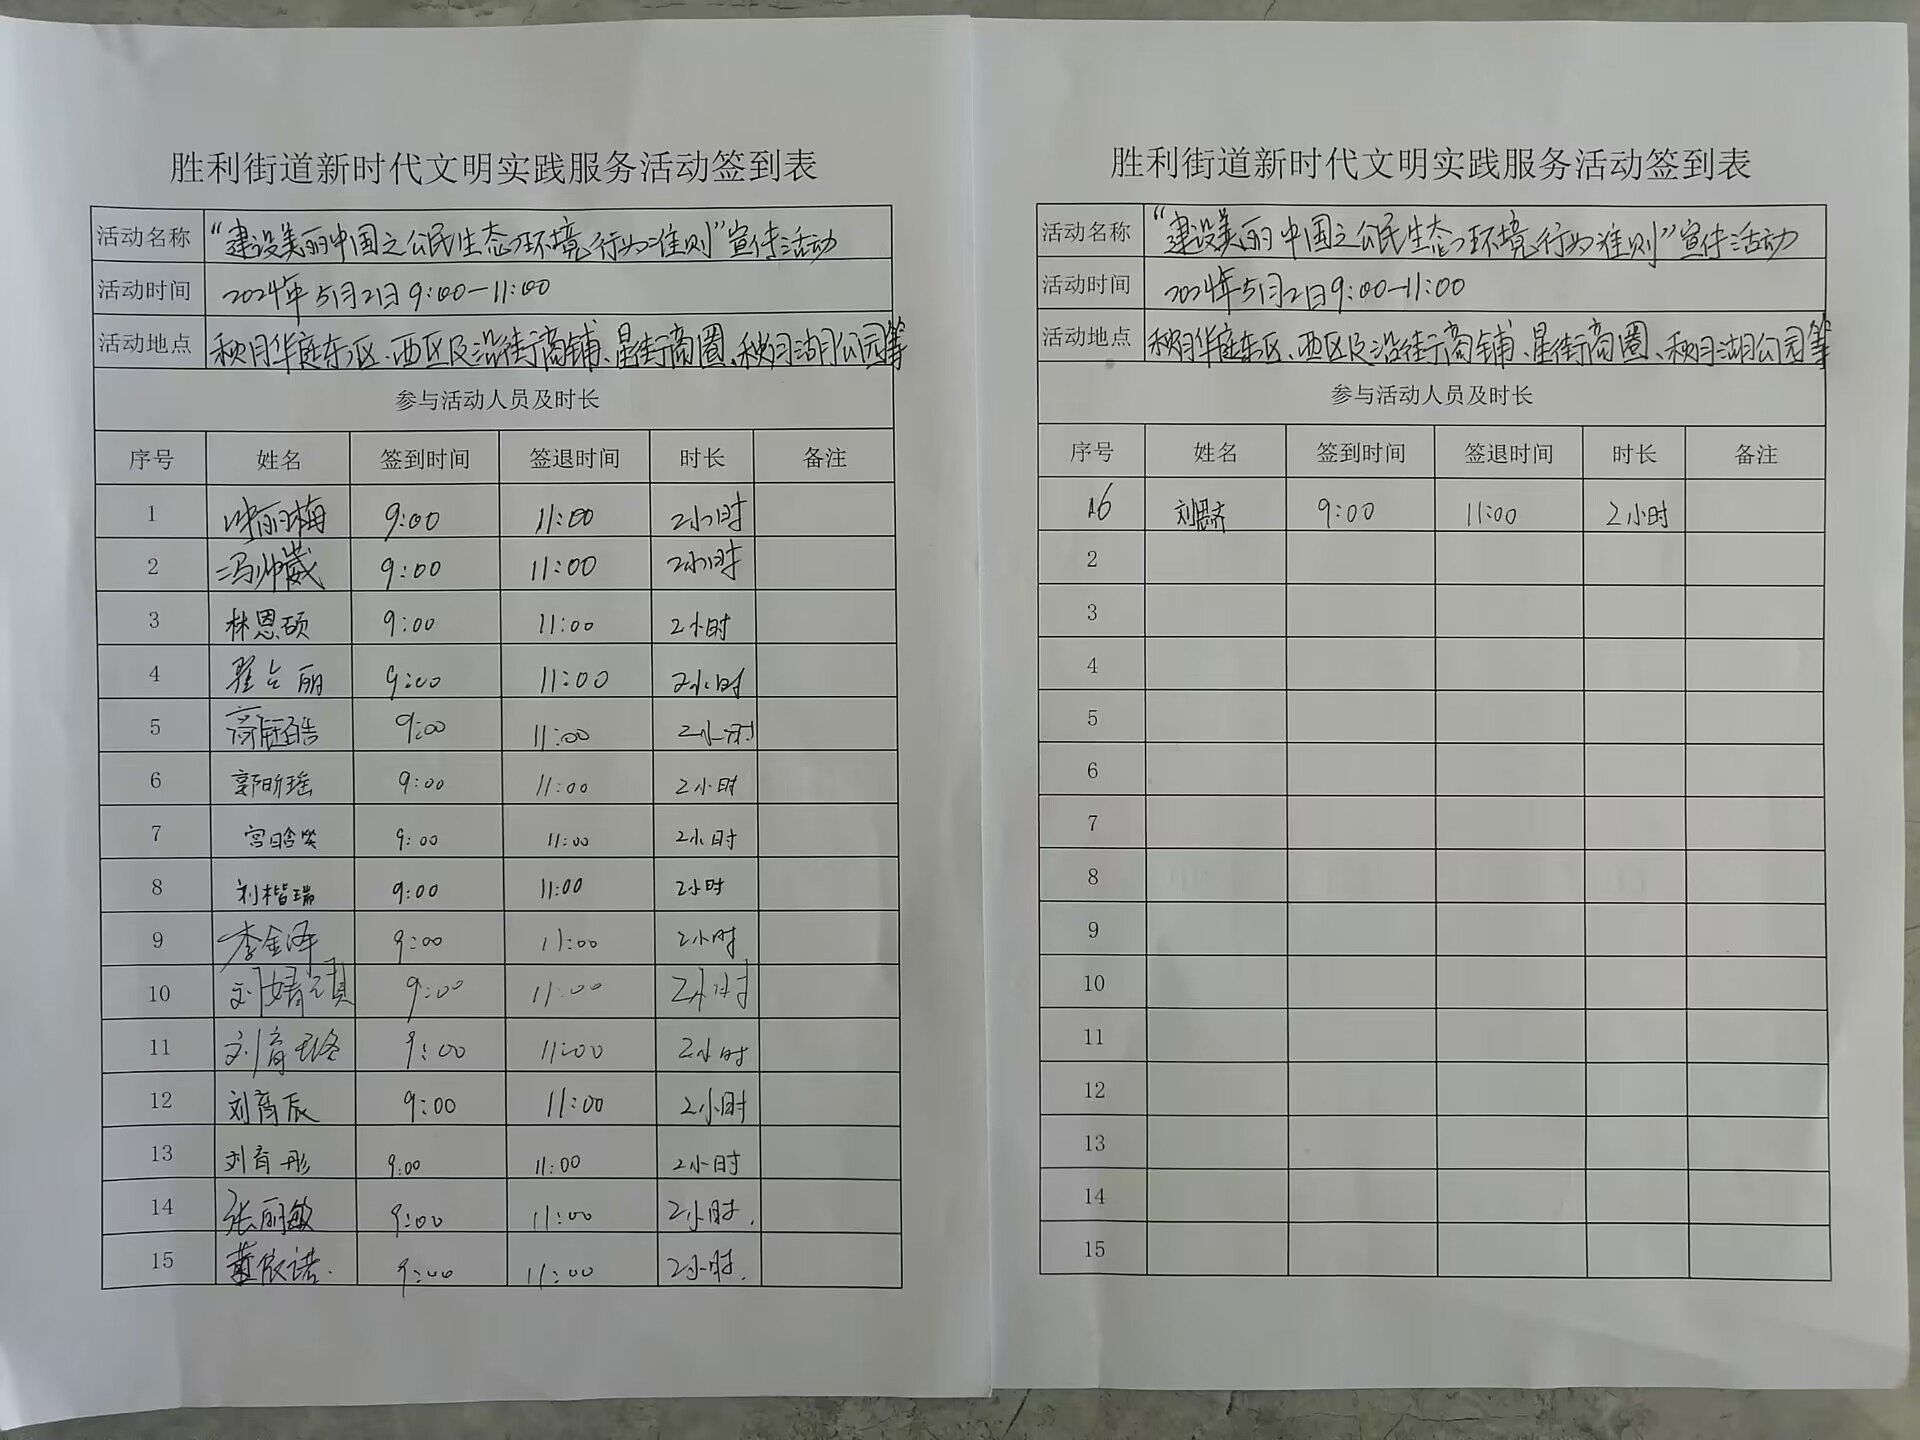 胜利街道新时代文明实践服务活动签到表
活动名称 “建设美丽中国之公民生态环境行为准则”宣传活动
活动时间 2024年5月21日9:00-11:00
活动地点 秋月华庭东区、西区及沿街商铺、星街商圈、秋月湖公园等
参与活动人员及时长
序号 姓名 签到时间 签退时间 时长 备注
1 丽梅 9:00 11:00 2小时
2 冯帅崴 9:00 11:00 2小时
3 林恩硕 9:00 11:00 2小时
4 翟云丽 9:00 11:00 2小时
5 9:00 11:00 2小时
6 郭昕瑶 9:00 11:00 2小时
7 宫晗笑 9:00 11:00 2小时
8 刘楷瑞 9:00 11:00 2小时
9 李金泽 9:00 11:00 2小时
10 刘婧 9:00 11:00 2小时
11 刘育 9:00 11:00 2小时
12 刘育辰 9:00 11:00 2小时
13 刘育彤 9:00 11:00 2小时
14 张丽敏 9:00 11:00 2小时.
15 董依诺. 9:00 11:00 2小时.
胜利街道新时代文明实践服务活动签到表
活动名称 “建设美丽中国之公民生态环境行为准则”宣传活动
活动时间 2024年5月21日9:00-11:00
活动地点 秋月华庭东区、西区及沿街商铺、星街商圈、秋月湖公园等
参与活动人员及时长
序号 姓名 签到时间 签退时间 时长 备注
16 刘思齐 9:00 11:00 2小时
2
3
4
5
6
7
8
9
10
11
12
13
14
15